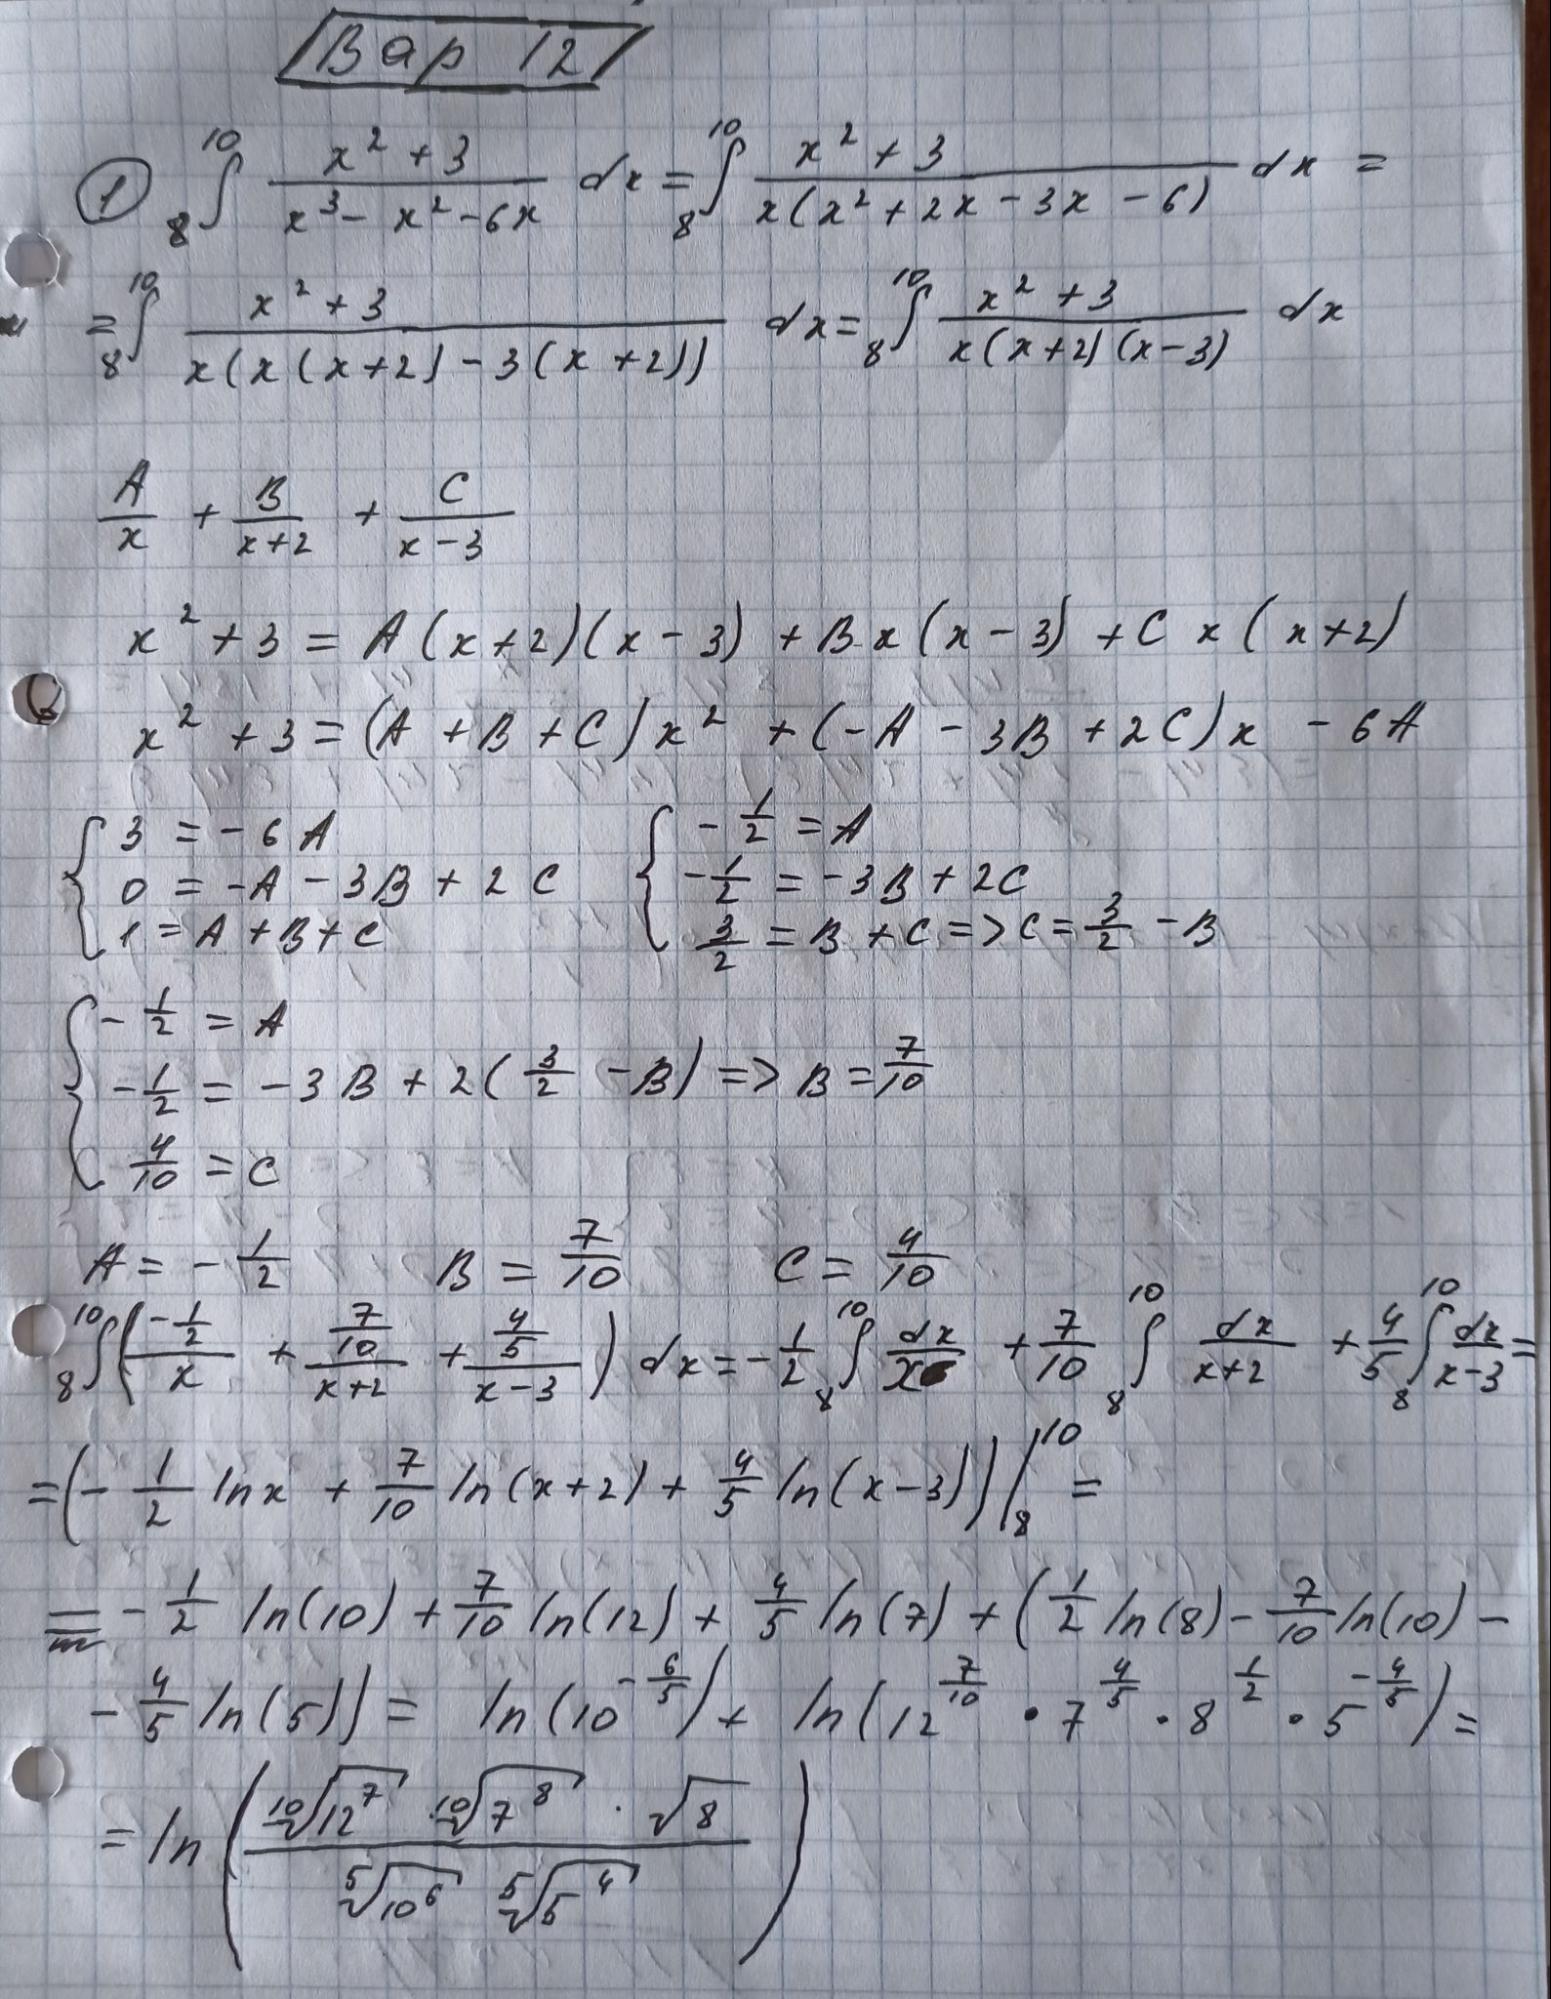 Вар 12
① ₈∫¹⁰ (x² + 3)/(x³ - x² - 6x) dx = ₈∫¹⁰ (x² + 3)/(x(x² + 2x - 3x - 6)) dx =
= ₈∫¹⁰ (x² + 3)/(x(x(x+2) - 3(x+2))) dx = ₈∫¹⁰ (x² + 3)/(x(x+2)(x-3)) dx
A/x + B/(x+2) + C/(x-3)
x² + 3 = A(x+2)(x-3) + B·x(x-3) + Cx(x+2)
x² + 3 = (A + B + C)x² + (-A - 3B + 2C)x - 6A
{ 3 = -6A { -1/2 = A
0 = -A - 3B + 2C -1/2 = -3B + 2C
1 = A + B + C 3/2 = B + C => C = 3/2 - B
{ -1/2 = A
-1/2 = -3B + 2(3/2 - B) => B = 7/10
4/10 = C
A = -1/2 B = 7/10 C = 4/10
₈∫¹⁰ ((-1/2)/x + (7/10)/(x+2) + (4/5)/(x-3)) dx = -1/2 ₈∫¹⁰ dx/x + 7/10 ₈∫¹⁰ dx/(x+2) + 4/5 ₈∫¹⁰ dx/(x-3) =
= (-1/2 ln x + 7/10 ln(x+2) + 4/5 ln(x-3)) |₈¹⁰ =
= -1/2 ln(10) + 7/10 ln(12) + 4/5 ln(7) + (1/2 ln(8) - 7/10 ln(10) -
- 4/5 ln(5)) = ln(10^(-6/5)) + ln(12^(7/10) · 7^(4/5) · 8^(1/2) · 5^(-4/5)) =
= ln( (¹⁰√12⁷ · ¹⁰√7⁸ · √8) / (⁵√10⁶ ⁵√5⁴) )